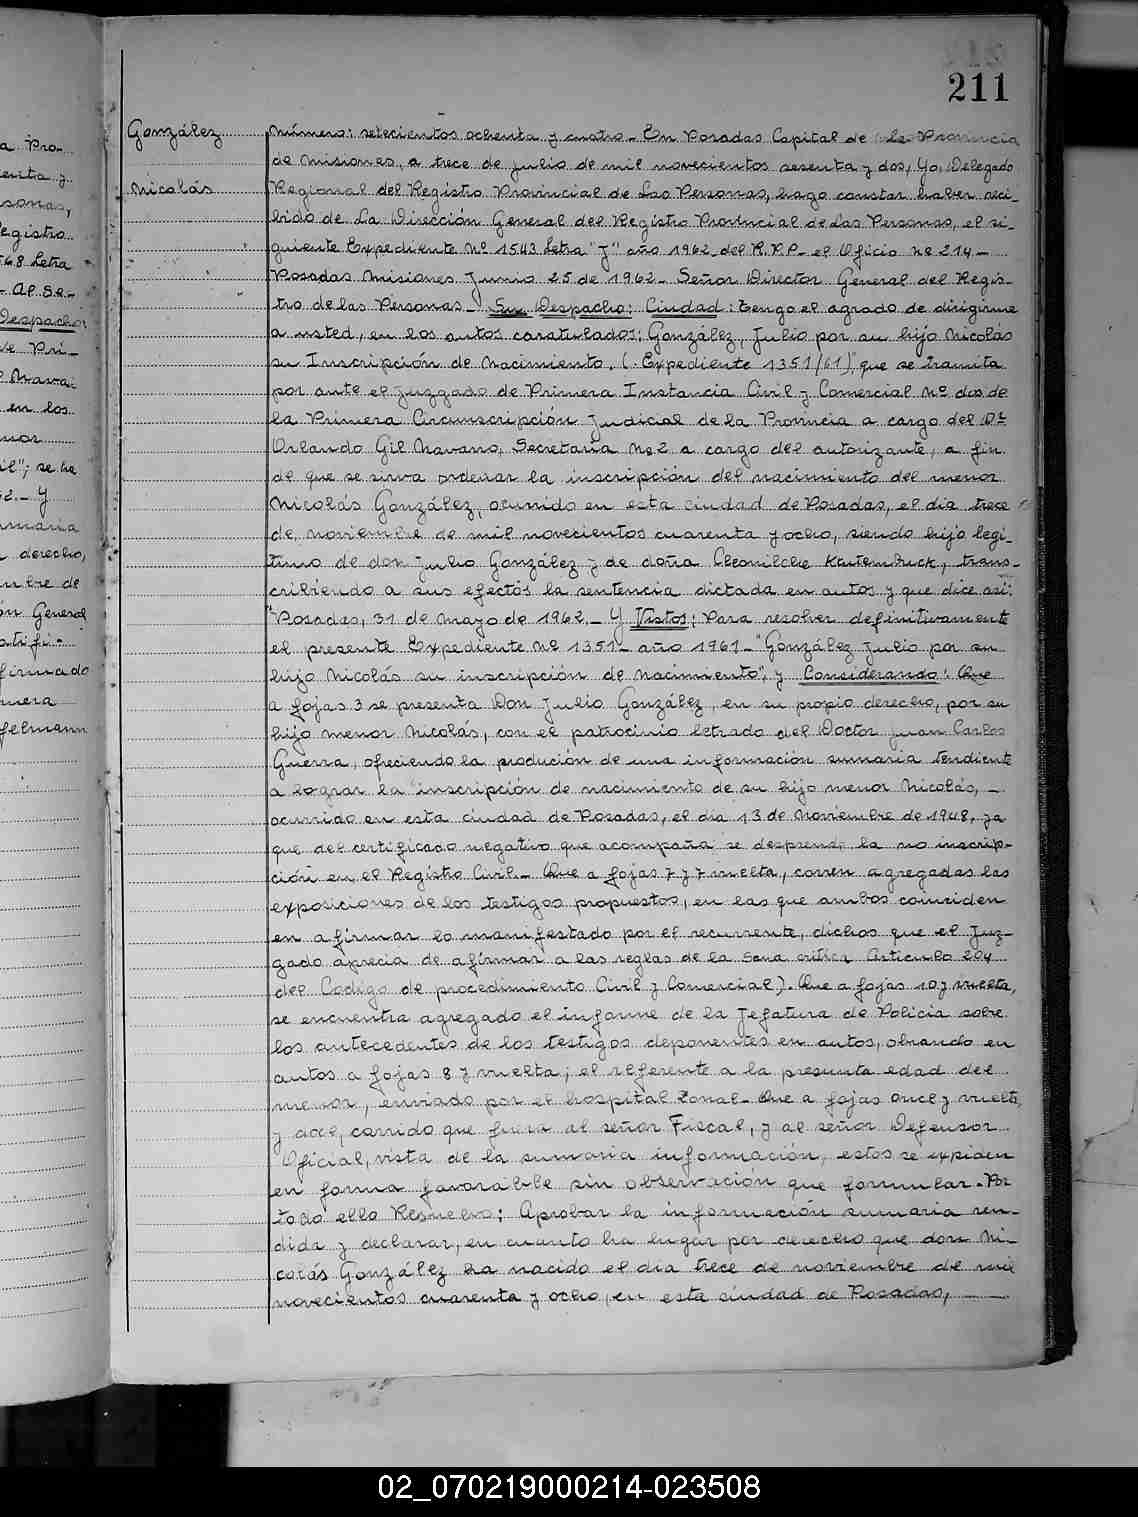 211
González
Nicolás
Número: setecientos ochenta y cuatro.- En Posadas Capital de la Provincia
de Misiones, a trece de julio de mil novecientos sesenta y dos, Yo, Delegado
Regional del Registro Provincial de Las Personas, hago constar haber reci-
bido de La Dirección General del Registro Provincial de Las Personas, el si-
guiente Expediente Nº 1543 Letra "J" año 1962 del R.P.P.- el Oficio Nº 214.-
Posadas Misiones Junio 25 de 1962.- Señor Director General del Regis-
tro de las Personas.- Su Despacho: Ciudad: Tengo el agrado de dirigirme
a usted, en los autos caratulados: González, Julio por su hijo Nicolás
su Inscripción de Nacimiento. (Expediente 1351/61), que se tramita
por ante el Juzgado de Primera Instancia Civil y Comercial Nº dos de
la Primera Circunscripción Judicial de la Provincia a cargo del Dr.
Orlando Gil Navarro, Secretaria Nº 2 a cargo del autorizante, a fin
de que se sirva ordenar la inscripción del nacimiento del menor
Nicolás González, ocurrido en esta ciudad de Posadas, el día trece
de, noviembre de mil novecientos cuarenta y ocho, siendo hijo legi-
timo de don Julio González y de doña Cleonilche, trans-
cribiendo a sus efectos la sentencia dictada en autos y que dice así:
"Posadas, 31 de Mayo de 1962.- Y Vistos: Para resolver definitivamente
el presente Expediente Nº 1351- año 1961- "González Julio por su
hijo Nicolás su inscripción de Nacimiento", y Considerando: Que
a fojas 3 se presenta Don Julio González, en su propio derecho, por su
hijo menor Nicolás, con el patrocinio letrado del Doctor Juan Carlos
Guerra, ofreciendo la produción de una información sumaria tendiente
a lograr la inscripción de nacimiento de su hijo menor Nicolás, -
ocurrido en esta ciudad de Posadas, el día 13 de Noviembre de 1948, ya
que del certificado negativo que acompaña se desprende la no inscrip-
ción en el Registro Civil.- Que a fojas 7 y 7 vuelta, corren agregadas las
exposiciones de los testigos propuestos, en las que ambos coinciden
en afirmar lo manifestado por el recurrente, dichos que el Juz-
gado aprecia de afirmar a las reglas de la sana critica Articulo 204
del Codigo de procedimiento Civil y Comercial). Que a fojas 10 y vuelta,
se encuentra agregado el informe de la Jefatura de Policia sobre
los antecedentes de los testigos deponentes en autos, obrando en
autos a fojas 8 y vuelta; el referente a la presunta edad del
menor, enviado por el hospital Zonal.- Que a fojas once y vuelta,
y doce, corrido que fuera al señor Fiscal, y al señor Defensor
Oficial, vista de la sumaria información, estos se expiden
en forma favorable sin observación que formular.- Por
todo ello Resuelvo: Aprobar la información sumaria ren-
dida y declarar, en cuanto ha lugar por derecho que don Ni-
colás González ha nacido el día trece de noviembre de mil
novecientos cuarenta y ocho, en esta ciudad de Posadas, - -
02_070219000214-023508